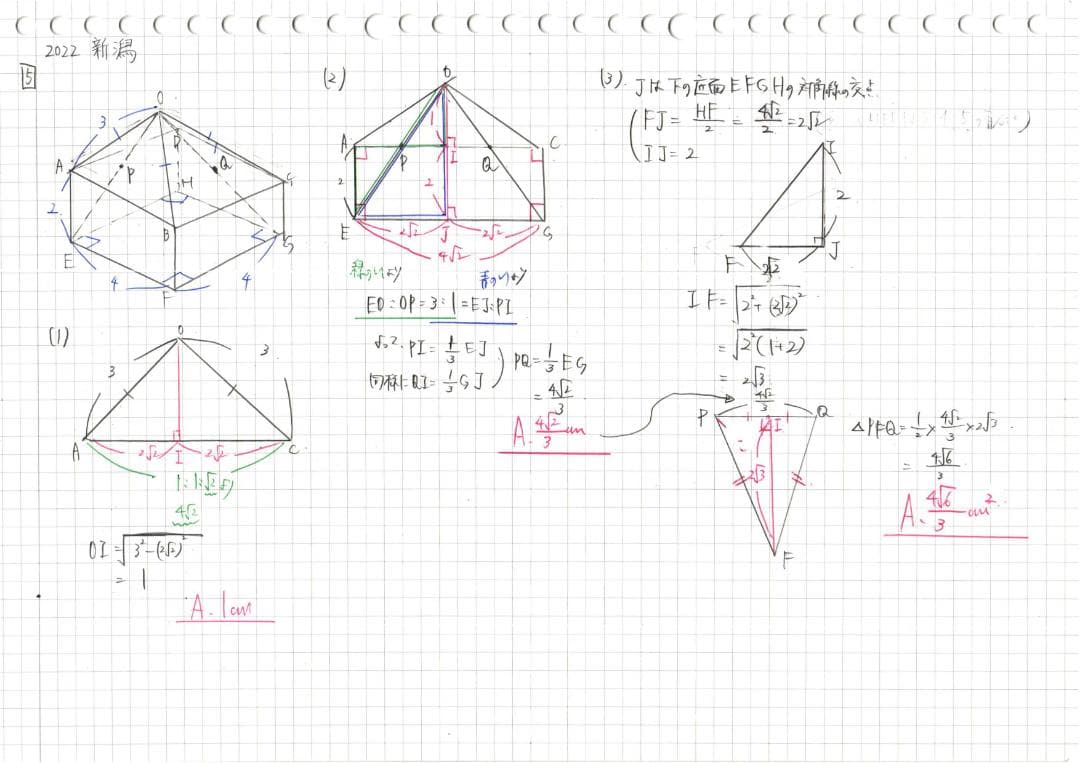 2022 新潟
5
O
3
A
P
Q
D
H
C
2
B
G
E
4
4
F
(1)
O
3
3
A
2√2
I
2√2
C
1:1:√2より
4√2
OI=√3²-(2√2)²
= 1
A. 1cm
(2)
O
1
A
P
I
Q
C
2
2
E
2√2
J
2√2
G
4√2
緑のいより
青のいより
EO:OP=3:1=EJ:PI
よって、PI=1/3 EJ
同様にQI=1/3 GJ
PQ=1/3 EG
= 4√2/3
A. 4√2/3 cm
(3)
Jは下の底面EFGHの対角線の交点
FJ= HF/2 = 4√2/2 = 2√2
IJ=2
I
2
F
2√2
J
IF=√2²+(2√2)²
=√2²(1+2)
= 2√3
4√2/3
P
I
Q
2√3
F
△PFQ=1/2×4√2/3×2√3
= 4√6/3
A. 4√6/3 cm²